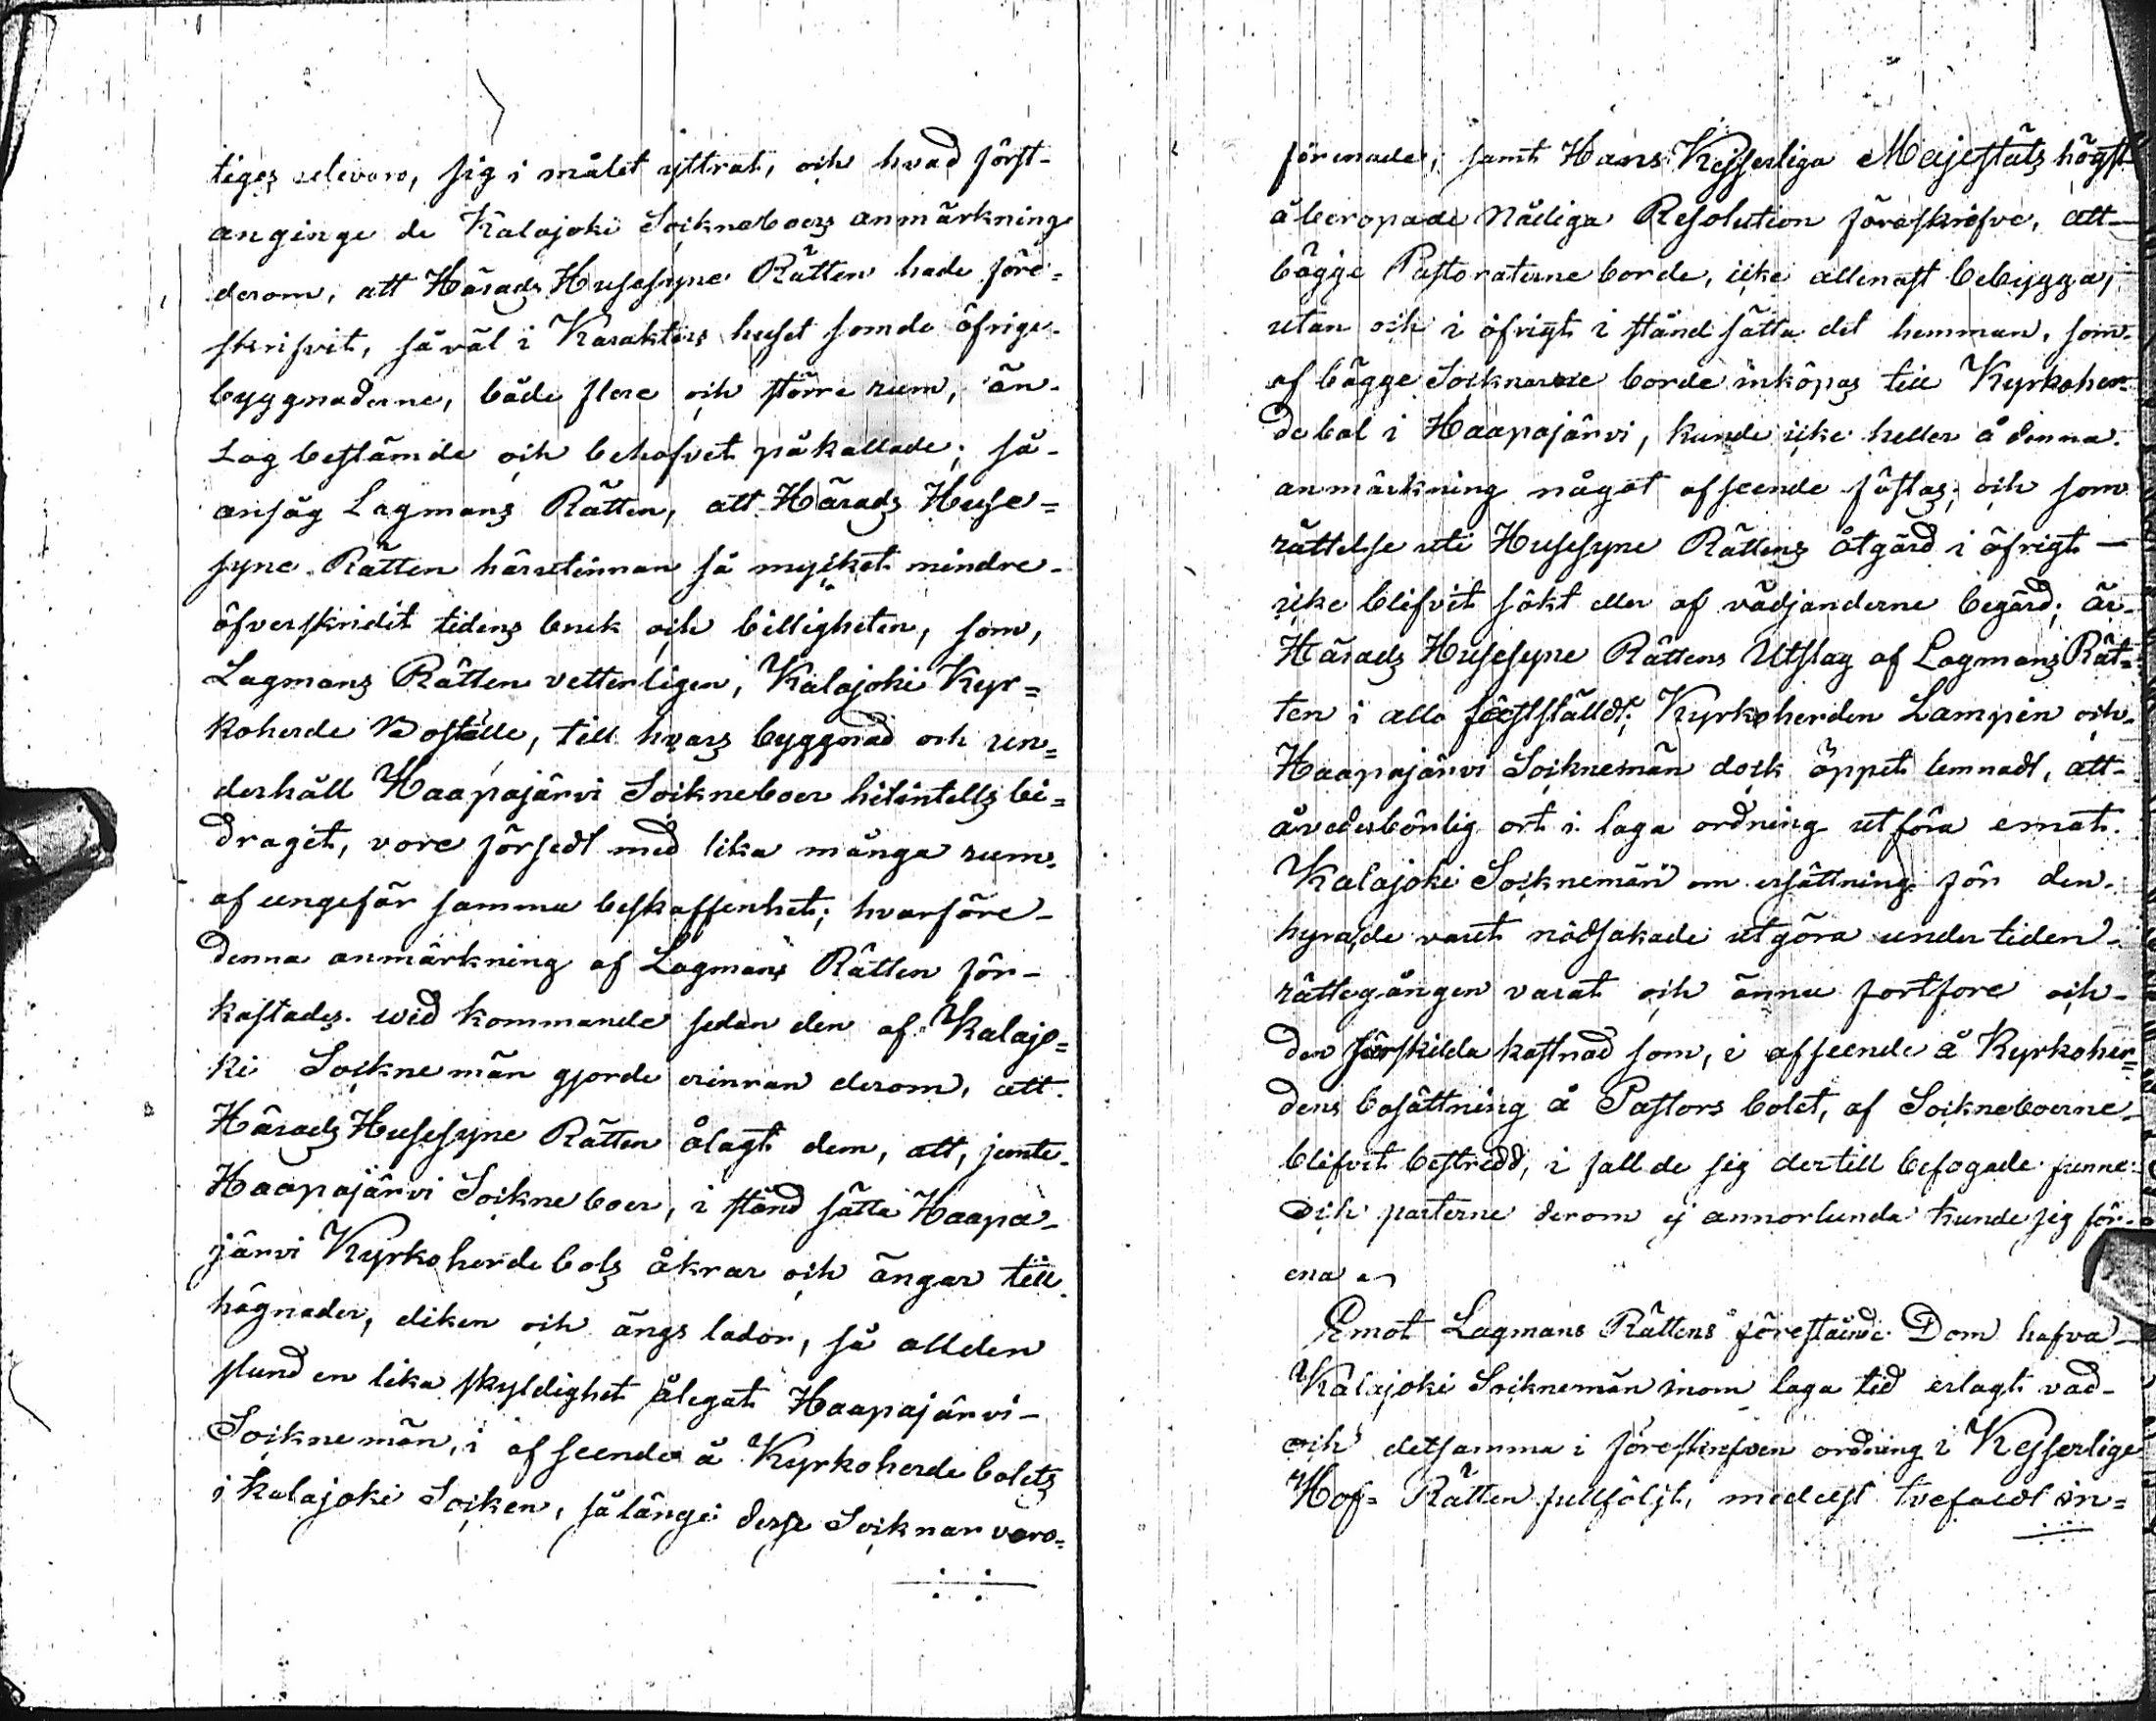 tiges utevaro, sig i målet yttrat, och hvad först-
anginge de Kalajoki Sockneboers anmärkning
derom, att Härads Husesyne Rätten hade före=
skrifvit, såväl i Karakters huset som de öfrige
byggnaderne, både flere och större rum, än
Lag bestämde och behofvet påkallade; så-
ansåg Lagmans Rätten, att Härads Huse=
syne Rätten härutinnan så mycket mindre
öfverskridit tidens bruk och billigheten, som,
Lagmans Rätten vetterligen, Kalajoki Kyr=
koherde Boställe, till hvars byggnad och un=
derhåll Haapajärvi Sockneboer hitintills bi=
dragit, vore försedt med lika många rum
af ungefär samma beskaffenhet; hvarföre-
denna anmärkning af Lagmans Rätten för-
kastades. wid kommande sedan den af Kalajo=
ki Socknemän gjorde erinran derom, att
Härads Husesyne Rätten ålagt dem, att, jemte
Haapajärvi Sockneboer, i stånd sätta Haapa-
järvi Kyrkoherdebols åkrar och ängar till
hägnader, diken och ängs lador, så allden
stund en lika skyldighet ålegat Haapajärvi-
Socknemän, i afseende å Kyrkoherdebolets
i Kalajoki Socken, så länge desse Socknar voro=
förenade, samt Hans Kejserliga Majestäts högst
åberopade Nådiga Resolution föreskrefve, att-
bägge Pastoraterne borde, icke allenast bebygga,
utan och i öfrigt i stånd sätta det hemman, som
af bägge Socknarne borde inköpas till Kyrkoher=
debol i Haapajärvi, kunde icke heller å denna
anmärkning något afseende fästas; och som
rättelse uti Husesyne Rättens åtgärd i öfrigt —
icke blifvit sökt eller af vädjanderne begärd; är
Härads Husesyne Rättens Utslag af Lagmans Rät=
ten i allo fastställdt; Kyrkoherden Lampén och
Haapajärvi Socknemän dock öppet lemnadt, att-
å vederbörlig ort i laga ordning utföra emot
Kalajoki Socknemän om ersättning för den
hyra, de varit nödsakade utgöra under tiden
rättegången varat och ännu fortfore och-
den särskilda kostnad som, i afseende å Kyrkoher=
dens bosättning å Pastors bolet, af Sockneboerne
blifvit bestredd, i fall de sig dertill befogade funne
och parterne derom ej annorlunda kunde sig för-
ena
Emot Lagmans Rättens förestående Dom hafva-
Kalajoki Socknemän inom laga tid erlagt vad-
och detsamma i föreskrefven ordning i Kejserlige
Hof= Rätten fullföljt, medelst tvefaldt in=